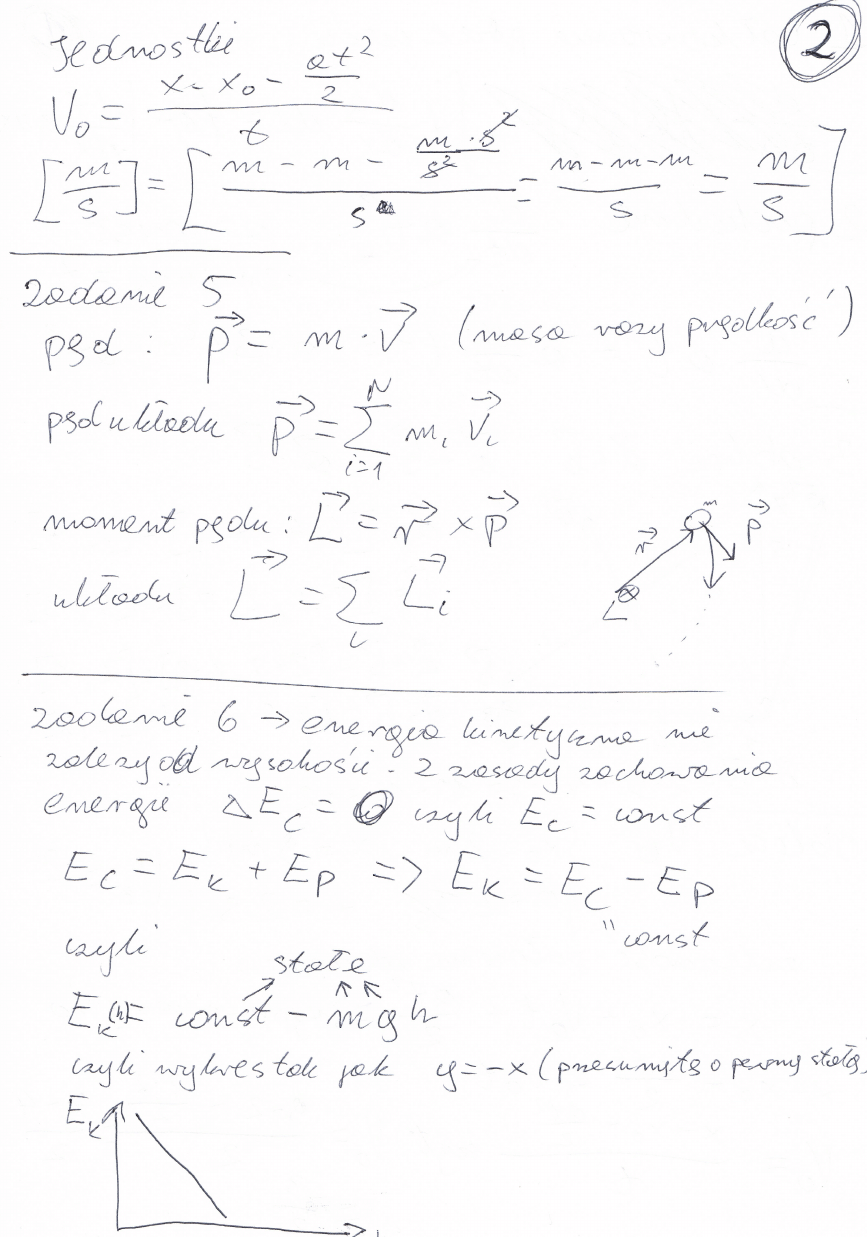 2
Jednostki
V₀ = (x - x₀ - at²/2) / t
[m/s] = [(m - m - m·s²/s²) / s = (m - m - m)/s = m/s]
zadanie 5
pęd : p⃗ = m · v⃗ (masa razy prędkość)
pęd układu p⃗ = Σ_{i=1}^{N} mᵢ v⃗ᵢ
moment pędu : L⃗ = r⃗ × p⃗
układu L⃗ = Σᵢ L⃗ᵢ
r⃗ m p⃗
L
zadanie 6 → energia kinetyczna nie
zależy od wysokości. Z zasady zachowania
energii ΔE_c = 0 czyli E_c = const
E_c = E_k + E_p => E_k = E_c - E_p
" const
czyli
stałe
E_k(h) = const - mgh
czyli wykres tak jak y = -x (przesunięte o pewną stałą)
E_k